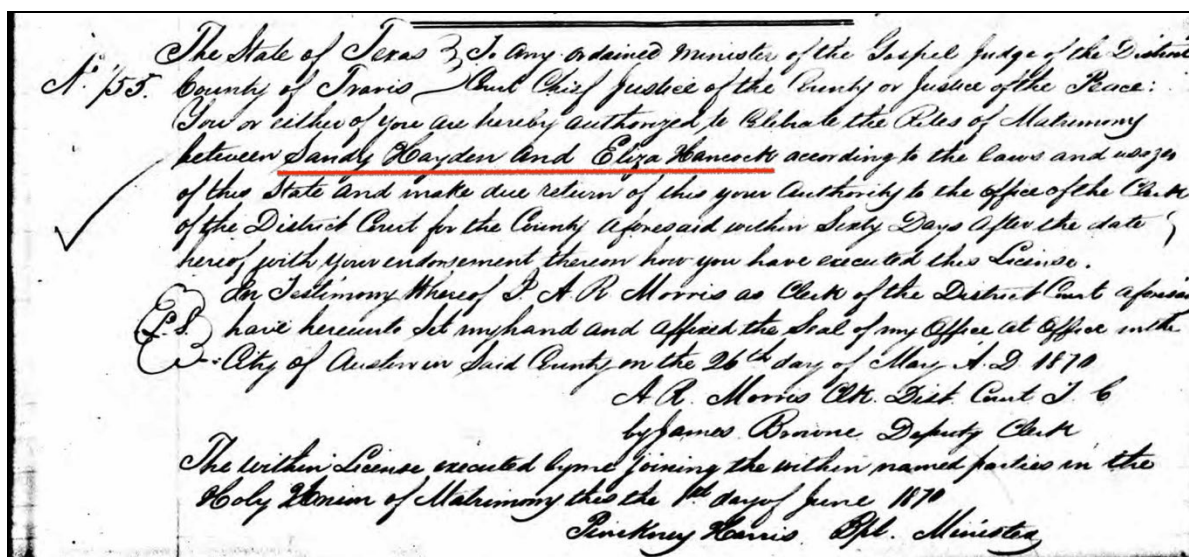 The State of Texas } To any ordained Minister of the Gospel Judge of the District
No. 155. County of Travis } Court Chief Justice of the County or Justice of the Peace:
You or either of you are hereby authorized to Celebrate the Rites of Matrimony
between Sandy Hayden and Eliza Hancock according to the laws and usages
of this State and make due return of this your Authority to the office of the Clerk
of the District Court for the County aforesaid within Sixty Days after the date
hereof, with your endorsement thereon how you have executed this License.
In Testimony Whereof I. A. R Morris as Clerk of the District Court aforesaid
(L.S.) have hereunto Set my hand and affixed the Seal of my Office at Office in the
City of Austin in Said County on the 26th day of May A.D. 1870
A. R. Morris Clk. Dist. Court T. C
by James Browne Deputy Clerk
The within License executed by me joining the within named parties in the
Holy Union of Matrimony this the 1st day of June 1870
Pinckney Harris Bpt. Minister